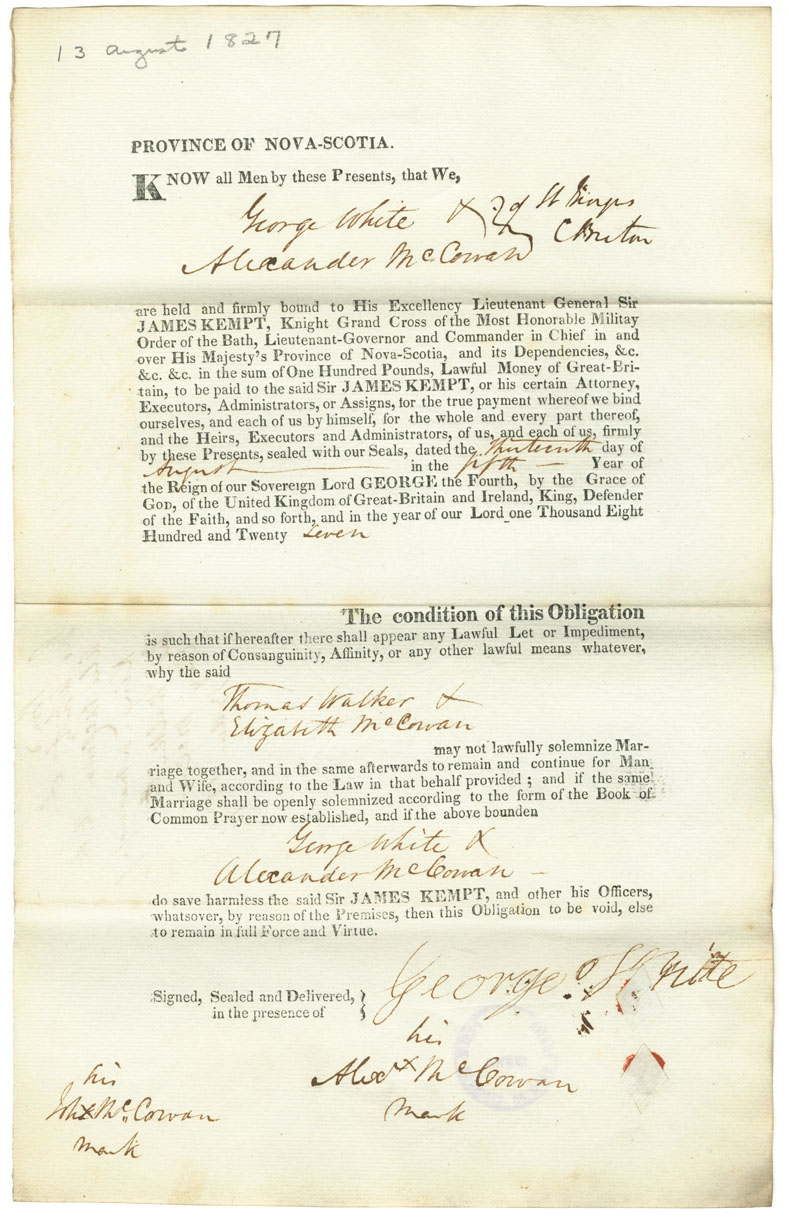 13 August 1827
PROVINCE OF NOVA-SCOTIA.
KNOW all Men by these Presents, that We,
George White &
Alexander McCowan
of St
C Breton
are held and firmly bound to His Excellency Lieutenant General Sir
JAMES KEMPT, Knight Grand Cross of the Most Honorable Militay
Order of the Bath, Lieutenant-Governor and Commander in Chief in and
over His Majesty's Province of Nova-Scotia, and its Dependencies, &c.
&c. &c. in the sum of One Hundred Pounds, Lawful Money of Great-Bri-
tain, to be paid to the said Sir JAMES KEMPT, or his certain Attorney,
Executors, Administrators, or Assigns, for the true payment whereof we bind
ourselves, and each of us by himself, for the whole and every part thereof,
and the Heirs, Executors and Administrators, of us, and each of us, firmly
by these Presents, sealed with our Seals, dated the thirteenth day of
August in the fifth — Year of
the Reign of our Sovereign Lord GEORGE the Fourth, by the Grace of
GOD, of the United Kingdom of Great-Britain and Ireland, King, Defender
of the Faith, and so forth, and in the year of our Lord one Thousand Eight
Hundred and Twenty seven
The condition of this Obligation
is such that if hereafter there shall appear any Lawful Let or Impediment,
by reason of Consanguinity, Affinity, or any other lawful means whatever,
why the said
Thomas Walker &
Elizabeth McCowan
may not lawfully solemnize Mar-
riage together, and in the same afterwards to remain and continue for Man
and Wife, according to the Law in that behalf provided ; and if the same
Marriage shall be openly solemnized according to the form of the Book of
Common Prayer now established, and if the above bounden
George White &
Alexander McCowan —
do save harmless the said Sir JAMES KEMPT, and other his Officers,
whatsover, by reason of the Premises, then this Obligation to be void, else
to remain in full Force and Virtue.
George White
Signed, Sealed and Delivered,
in the presence of
his
Alexr x McCowan
mark
his
x McCowan
mark